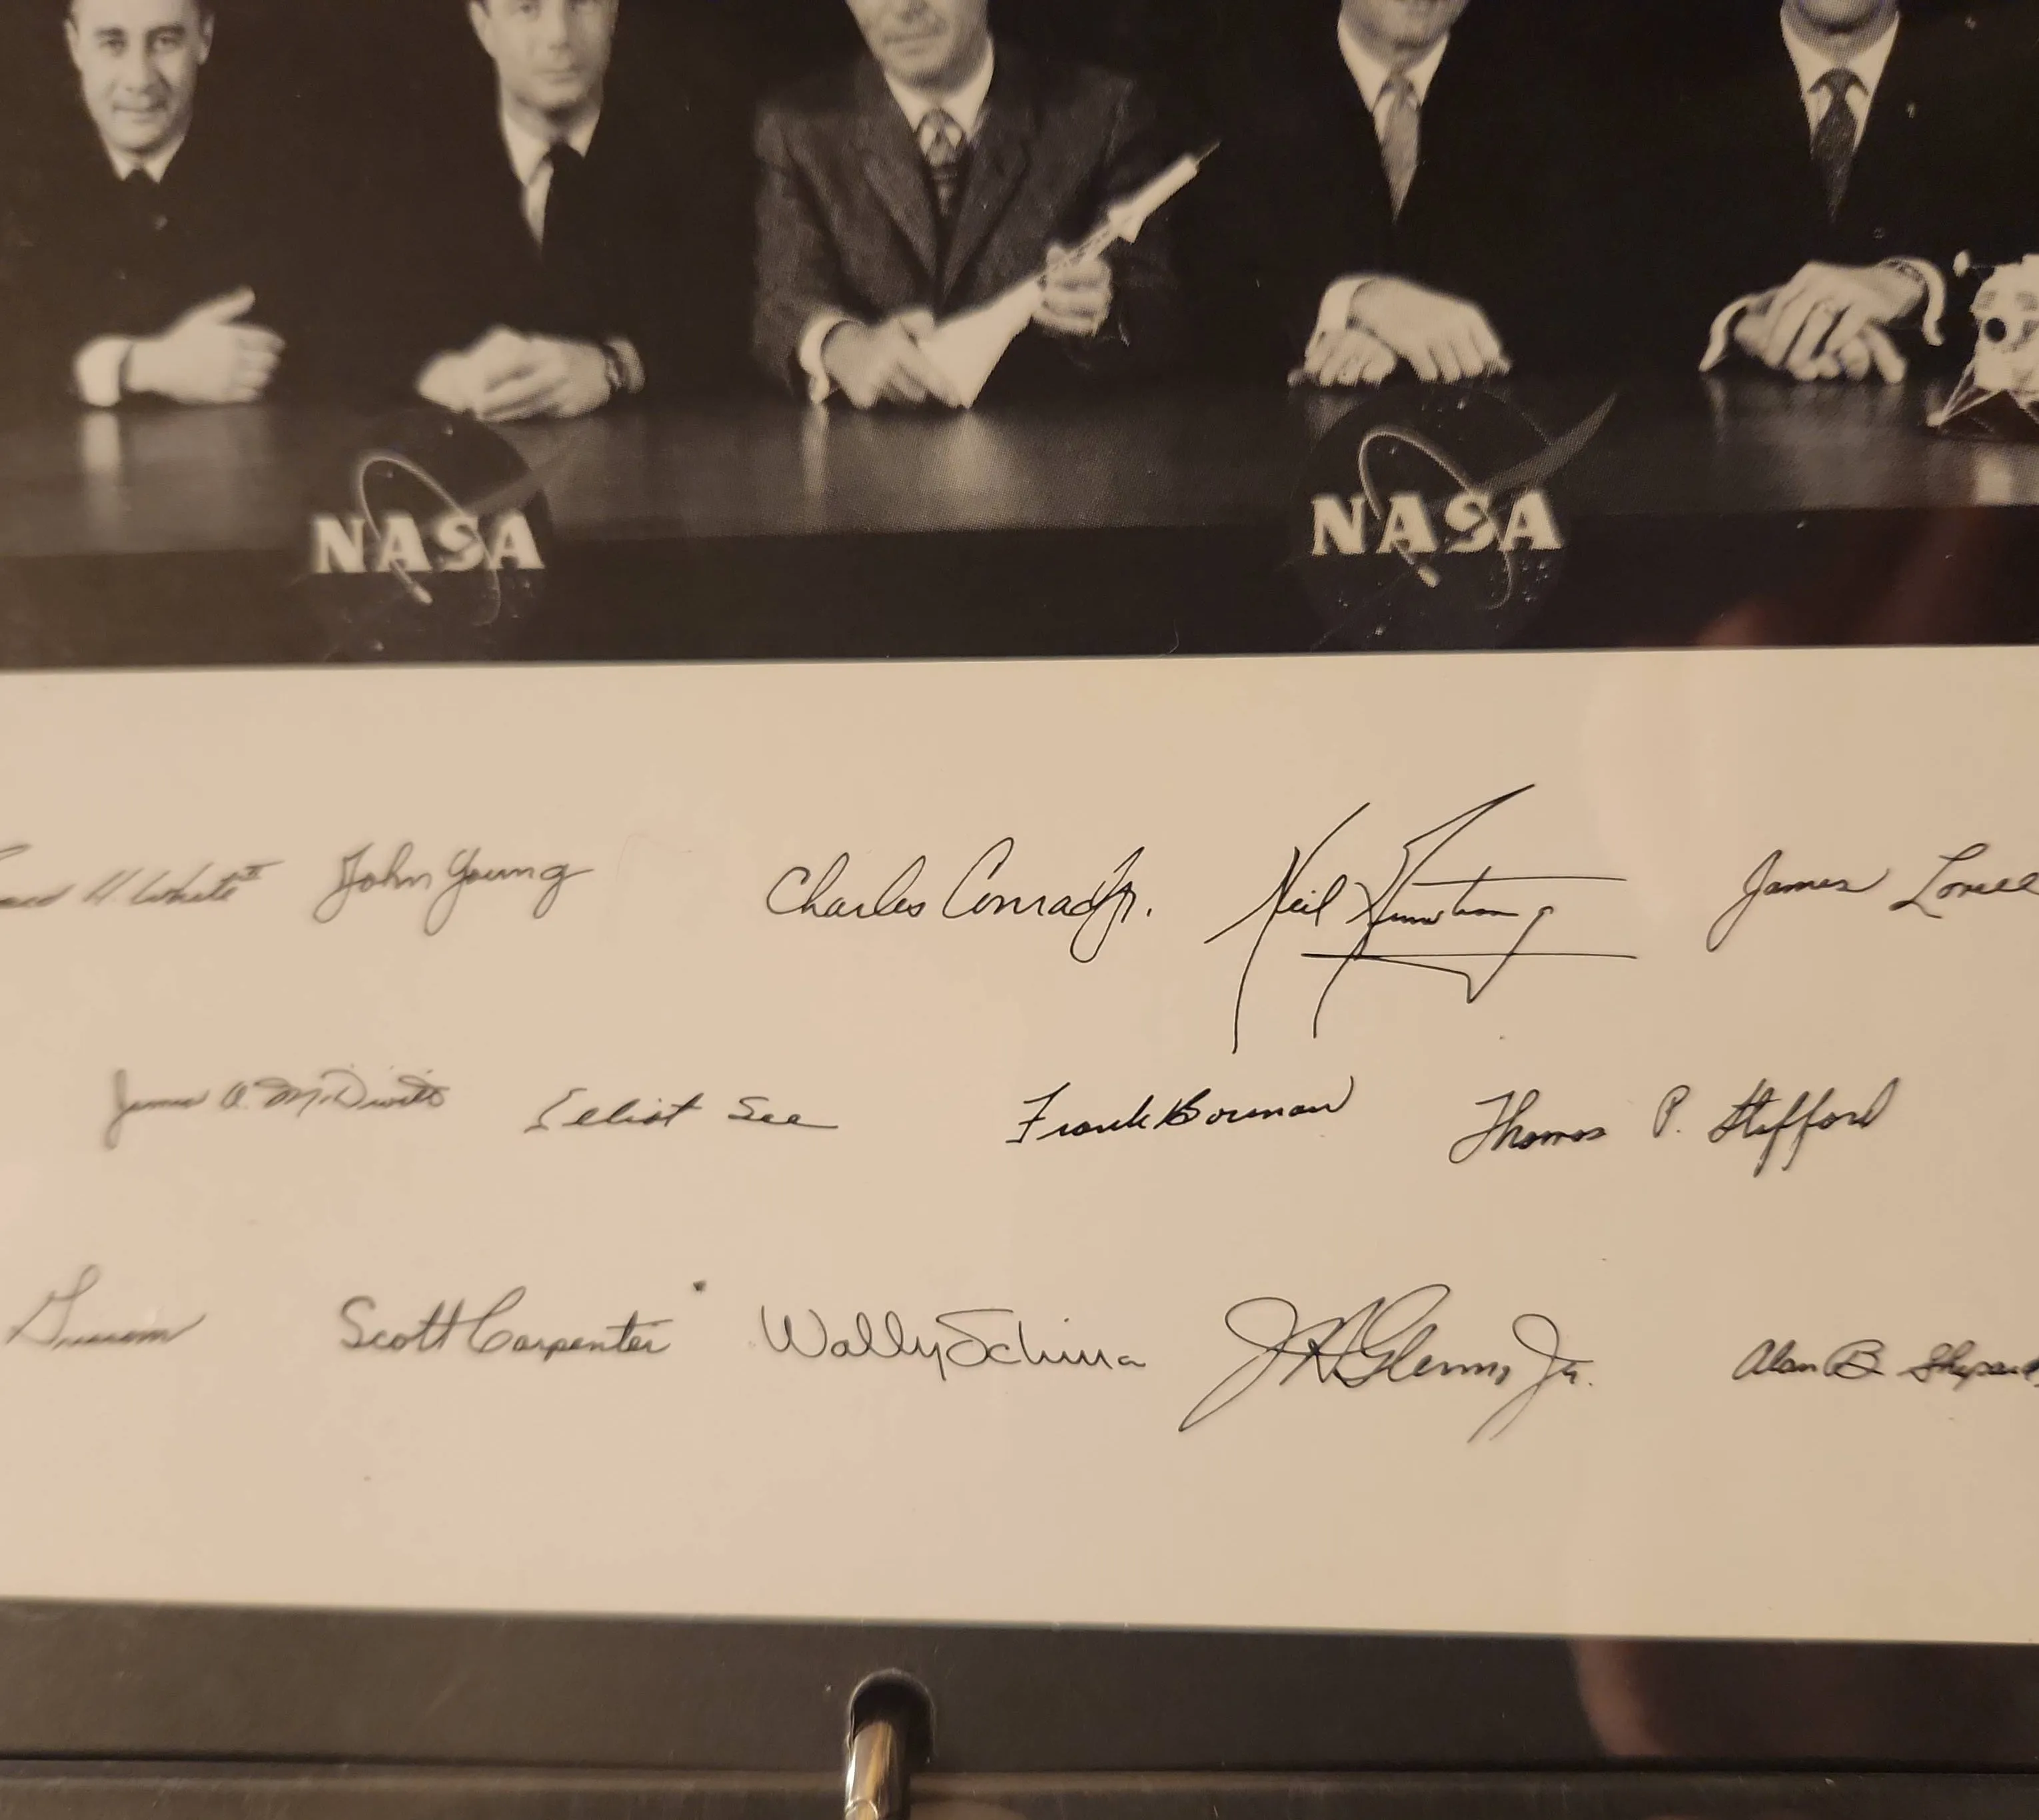 NASA NASA
H. White II John Young Charles Conrad Jr. Neil Armstrong James Lovell
James A. McDivitt Elliot See Frank Borman Thomas P. Stafford
Grissom Scott Carpenter Wally Schirra JHGlenn Jr. Alan B. Shepard